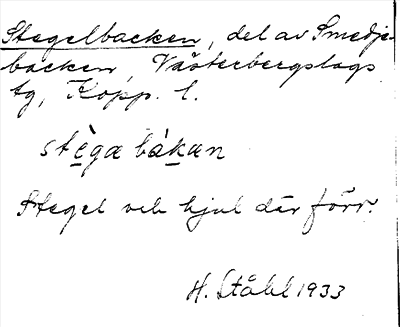 Stegelbacken, del av Smedje-
backen, Västerbergslags
tg, Kopp. l.
stèga bákan
Stegel och hjul där förr.
H. Ståhl 1933